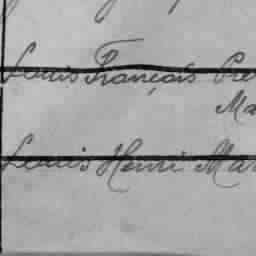 Louis François Pre
Ma
Louis Henri Mar